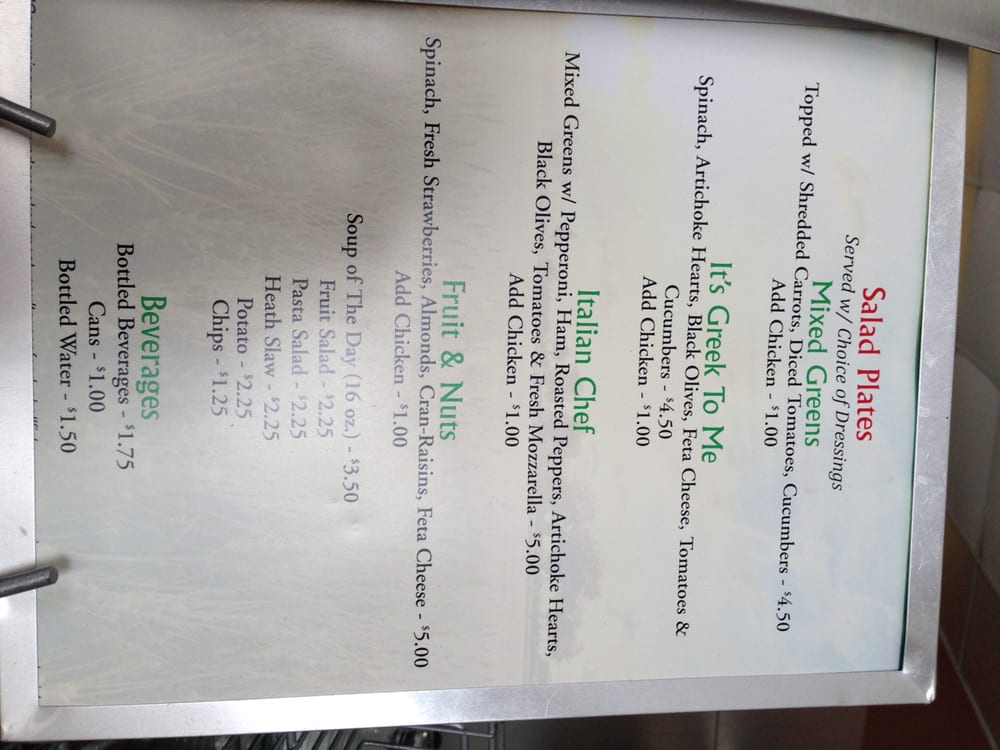 Salad Plates
Served w/ Choice of Dressings
Mixed Greens
Topped w/ Shredded Carrots, Diced Tomatoes, Cucumbers - $4.50
Add Chicken - $1.00
It's Greek To Me
Spinach, Artichoke Hearts, Black Olives, Feta Cheese, Tomatoes &
Cucumbers - $4.50
Add Chicken - $1.00
Italian Chef
Mixed Greens w/ Pepperoni, Ham, Roasted Peppers, Artichoke Hearts,
Black Olives, Tomatoes & Fresh Mozzarella - $5.00
Add Chicken - $1.00
Fruit & Nuts
Spinach, Fresh Strawberries, Almonds, Cran-Raisins, Feta Cheese - $5.00
Add Chicken - $1.00
Soup of The Day (16 oz.) - $3.50
Fruit Salad - $2.25
Pasta Salad - $2.25
Heath Slaw - $2.25
Potato - $2.25
Chips - $1.25
Beverages
Bottled Beverages - $1.75
Cans - $1.00
Bottled Water - $1.50